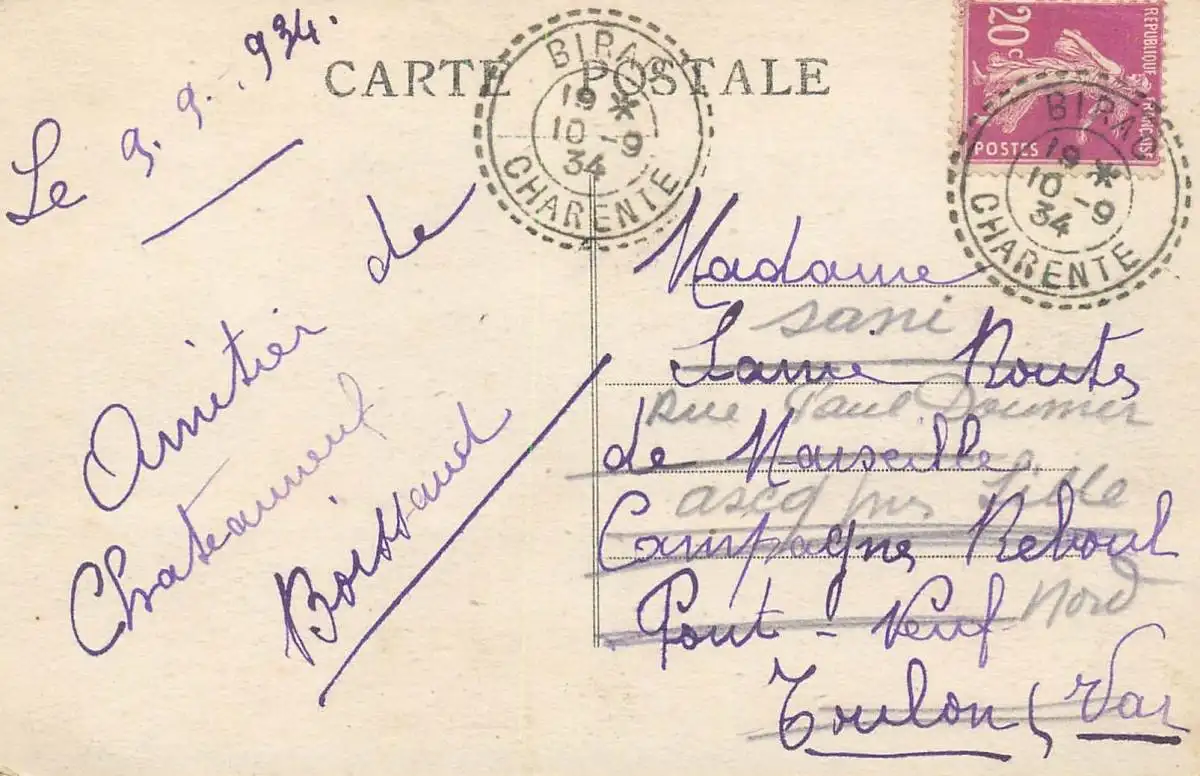 CARTE POSTALE
Le 9.9.934.
Amitier de
Chateauneuf
Boissaud
BIRAC
19 *
10 -9
34
CHARENTE
20c
REPUBLIQUE FRANÇAISE
POSTES
BIRAC
19 *
10 -9
34
CHARENTE
Madame
sani
Routes
Rue Paul Doumer
de Marseille
ascq près Lille
Campagne Reboul
Nord
Pont - Neuf
Toulon (Var